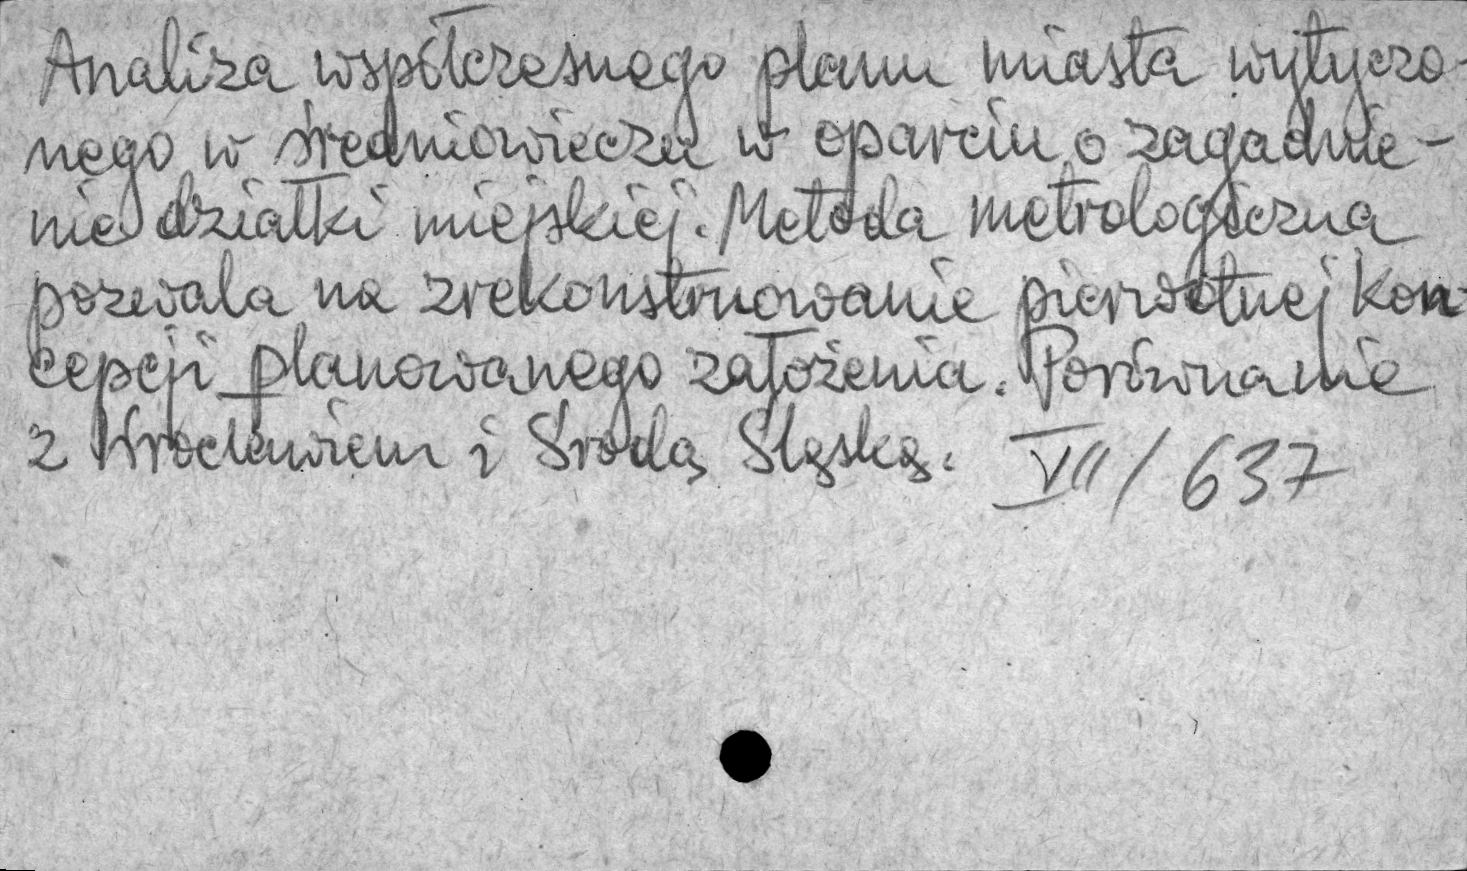 Analiza współczesnego planu miasta wytyczo-
nego w średniowieczu w oparciu o zagadnie-
nie działki miejskiej. Metoda metrologiczna
pozwala na zrekonstruowanie pierwotnej kon-
cepcji planowanego założenia. Porównanie
z Wrocławiem i Środą Śląską. VII/637